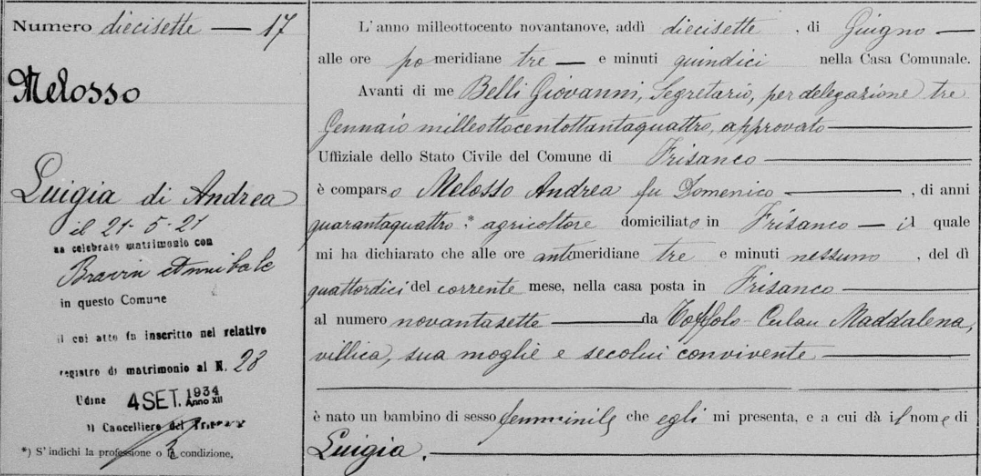 Numero diecisette — 17
Melosso
Luigia di Andrea
il 21-5-21
ha celebrato matrimonio con
Bravin Annibale
in questo Comune
il cui atto fu inscritto nel relativo
registro di matrimonio al N. 28
Udine 4 SET. 1934 Anno XII
Il Cancelliere del
*) S'indichi la professione o la condizione.
L'anno milleottocento novantanove, addì diecisette, di Giugno —
alle ore pomeridiane tre — e minuti quindici nella Casa Comunale.
Avanti di me Belli Giovanni, Segretario, per delegazione tre
Gennaio milleottocentottantaquattro, approvato
Uffiziale dello Stato Civile del Comune di Frisanco
è comparso Melosso Andrea fu Domenico, di anni
quarantaquattro * agricoltore domiciliato in Frisanco — il quale
mi ha dichiarato che alle ore antimeridiane tre e minuti nessuno, del dì
quattordici del corrente mese, nella casa posta in Frisanco
al numero novantasette da Toffolo-Culau Maddalena,
villica, sua moglie e secolui convivente
è nato un bambino di sesso femminile che egli mi presenta, e a cui dà il nome di
Luigia.